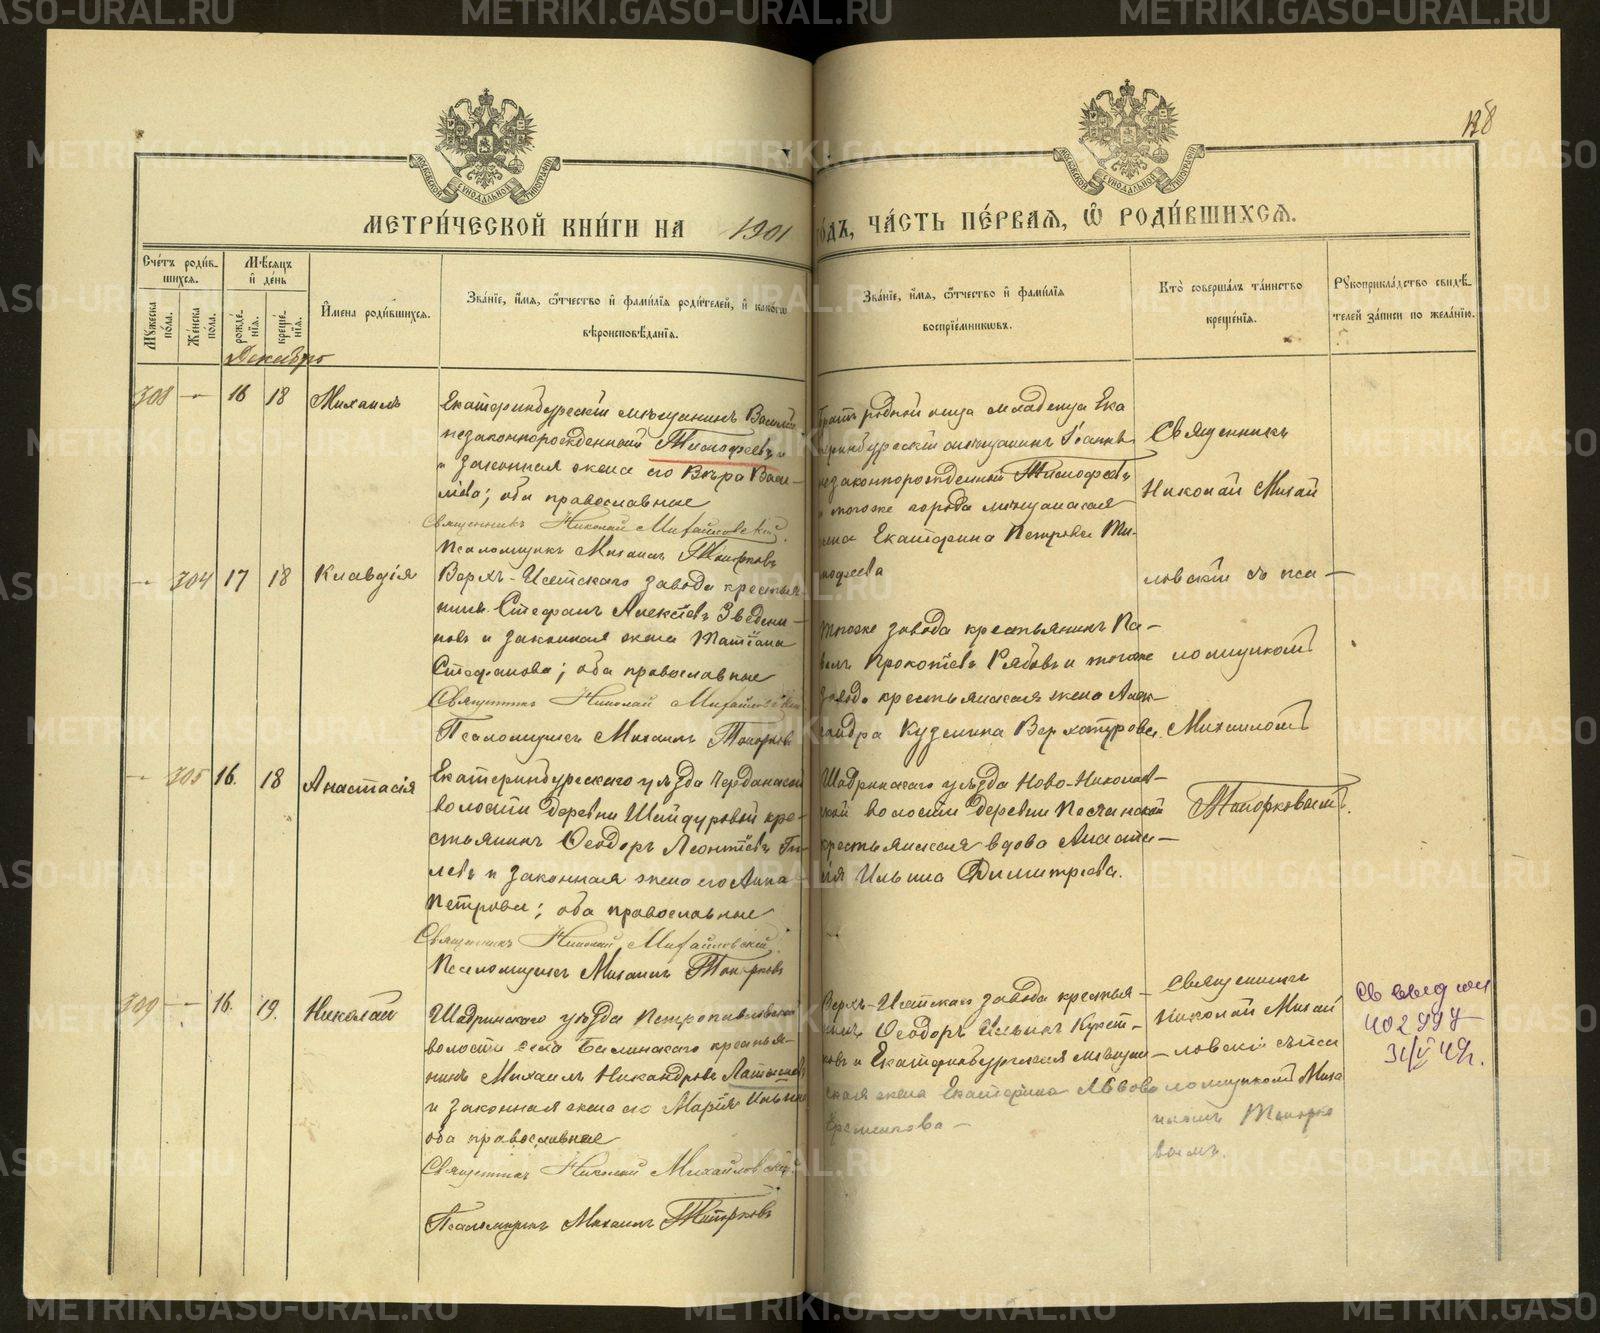 138
МЕТРИ́ЧЕСКОЙ КНИ́ГИ НА 1901 ГО́ДЪ, ЧА́СТЬ ПЕ́РВАЯ, Ѽ РОДИ́ВШИХСЯ.
Сче́тъ роди́в-
шихся.
Мѣ́сяцъ
и҆ де́нь
Мꙋ́жеска по́ла.
Же́нска по́ла.
рожде́-
нїя.
креще́-
нїя.
И҆мена роди́вшихся.
Зва́нїе, и҆́мя, ѻ҆́тчество и҆ фами́лїя роди́телей, и҆ како́гѡ
вѣроисповѣ́данїя.
Зва́нїе, и҆́мя, ѻ҆́тчество и҆ фами́лїя
воспрїе́мникѡвъ.
Кто̀ соверша́лъ та́инство
креще́нїя.
Рꙋкоприкла́дство свидѣ́-
телей за́писи по жела́нїю.
Декабрь
308 — 16 18 Михаилъ
Екатеринбургскій мѣщанинъ Василій
незаконнорожденный Тимофеевъ
и законная жена его Вѣра Васи-
льева; оба православные
Священникъ Николай Михайловскій.
Псаломщикъ Михаилъ Топорковъ
Братъ родной отца младенца Ека
теринбургскій мѣщанинъ Іоаннъ
незаконнорожденный Тимофеевъ
и тогоже города мѣщанская
жена Екатерина Петрова Ти-
мофеева
Священникъ
Николай Михай
ловскій съ пса-
ломщикомъ
Михаиломъ
Топорковымъ.
— 304 17 18 Клавдія
Верхъ-Исетскаго завода крестья
нинъ Стефанъ Алексѣевъ Зведени-
новъ и законная жена Татіана
Стефанова; оба православные
Священникъ Николай Михайловскій
Псаломщикъ Михаилъ Топорковъ
тогоже завода крестьянинъ Па-
велъ Прокопіевъ Рябовъ и тогоже
завода крестьянская жена Алек-
сандра Кузмина Верхотурова.
— 305 16. 18 Анастасія
Екатеринбургскаго уѣзда Черданской
волости деревни Шайдуровой кре-
стьянинъ Ѳеодоръ Леонтіевъ Ги-
левъ и законная жена его Анна
Петрова; оба православные
Священникъ Николай Михайловскій.
Псаломщикъ Михаилъ Топорковъ
Шадринскаго уѣзда Ново-Николаев-
ской волости деревни Песчанской
крестьянская вдова Анаста-
сія Ильина Димитріева.
309 — 16. 19. Николай
Шадринскаго уѣзда Петропавловской
волости села крестья-
нинъ Михаилъ Никандровъ Латышевъ
и законная жена его Марія Ильина
оба православные
Священникъ Николай Михайловскій
Псаломщикъ Михаилъ Топорковъ
Верхъ-Исетскаго завода крестья-
нинъ Ѳеодоръ Ильинъ
и Екатеринбургская мѣщан-
ская жена Екатерина Львова
Еремшкова —
Священникъ
Николай Михай
ловскій съ пса
ломщикомъ Миха
иломъ Топорко
вымъ.
Св выдан
31/V 49г.
METRIKI.GASO-URAL.RU